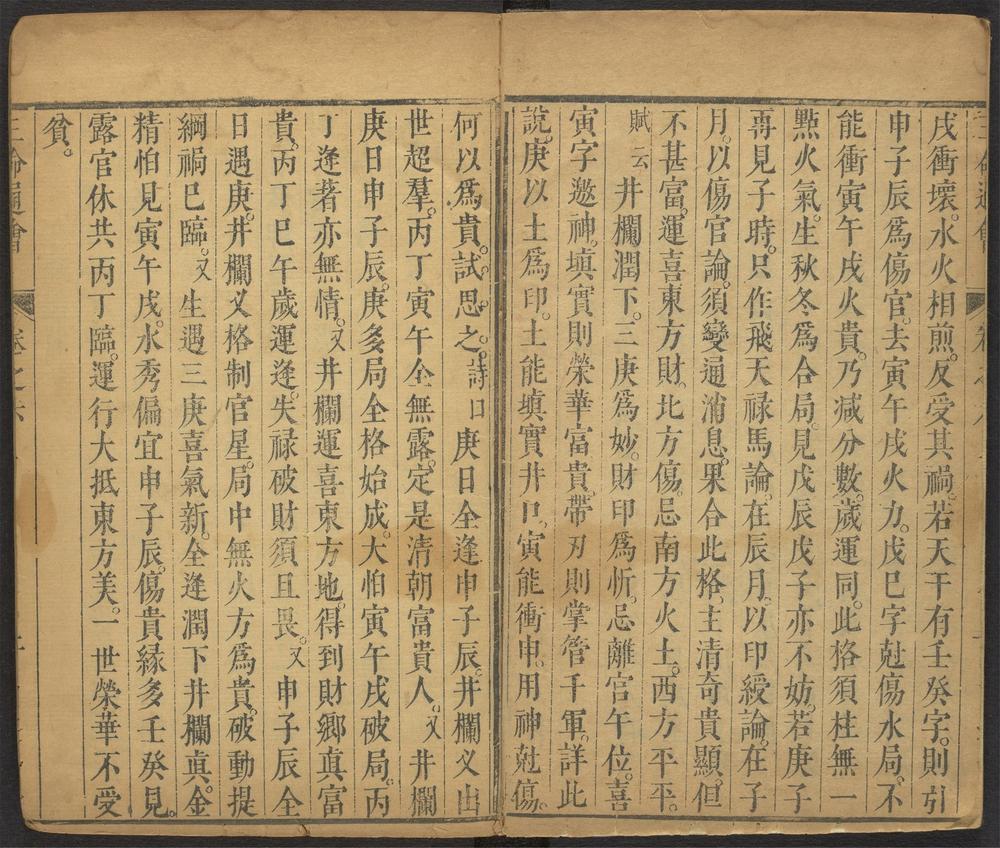 戌衝壞。水火相煎。反受其禍。若天干有壬癸字。則引
申子辰爲傷官。去寅午戌火力。戊巳字尅傷水局。不
能衝寅午戌火貴。乃减分數。歲運同。此格須柱無一
㸃火氣。生秋冬爲合局。見戊辰戊子亦不妨。若庚子
再見子時。只作飛天禄馬論。在辰月。以印綬論。在子
月。以傷官論。須變通消息。果合此格。主清奇貴顯。但
不甚富。運喜東方財。北方傷。忌南方火土。西方平平。
賦云井欄潤下。三庚爲妙。財印爲忻。忌離官午位。喜
寅字邀神。填實則榮華富貴。帶刃則掌管千軍。詳此
說。庚以土爲印。土能填實井口。寅能衝申。用神尅傷。
何以爲貴。試思之。詩曰庚日全逢申子辰。井欄义出
世超羣。丙丁寅午全無露。定是清朝富貴人。又井欄
庚日申子辰。庚多局全格始成。大怕寅午戌破局。丙
丁逢著亦無情。又井欄運喜東方地。得到財鄉真富
貴。丙丁巳午歲運逢。失禄破財須且畏。又申子辰全
日遇庚。井欄义格制官星。局中無火方爲貴。破動提
綱禍巳臨。又生遇三庚喜氣新。全逢潤下井欄真。金
精怕見寅午戌。水秀偏宜申子辰。傷貴緣多壬癸見。
露官休共丙丁臨。運行大抵東方美。一世榮華不受
貧。
三命通會
卷之六